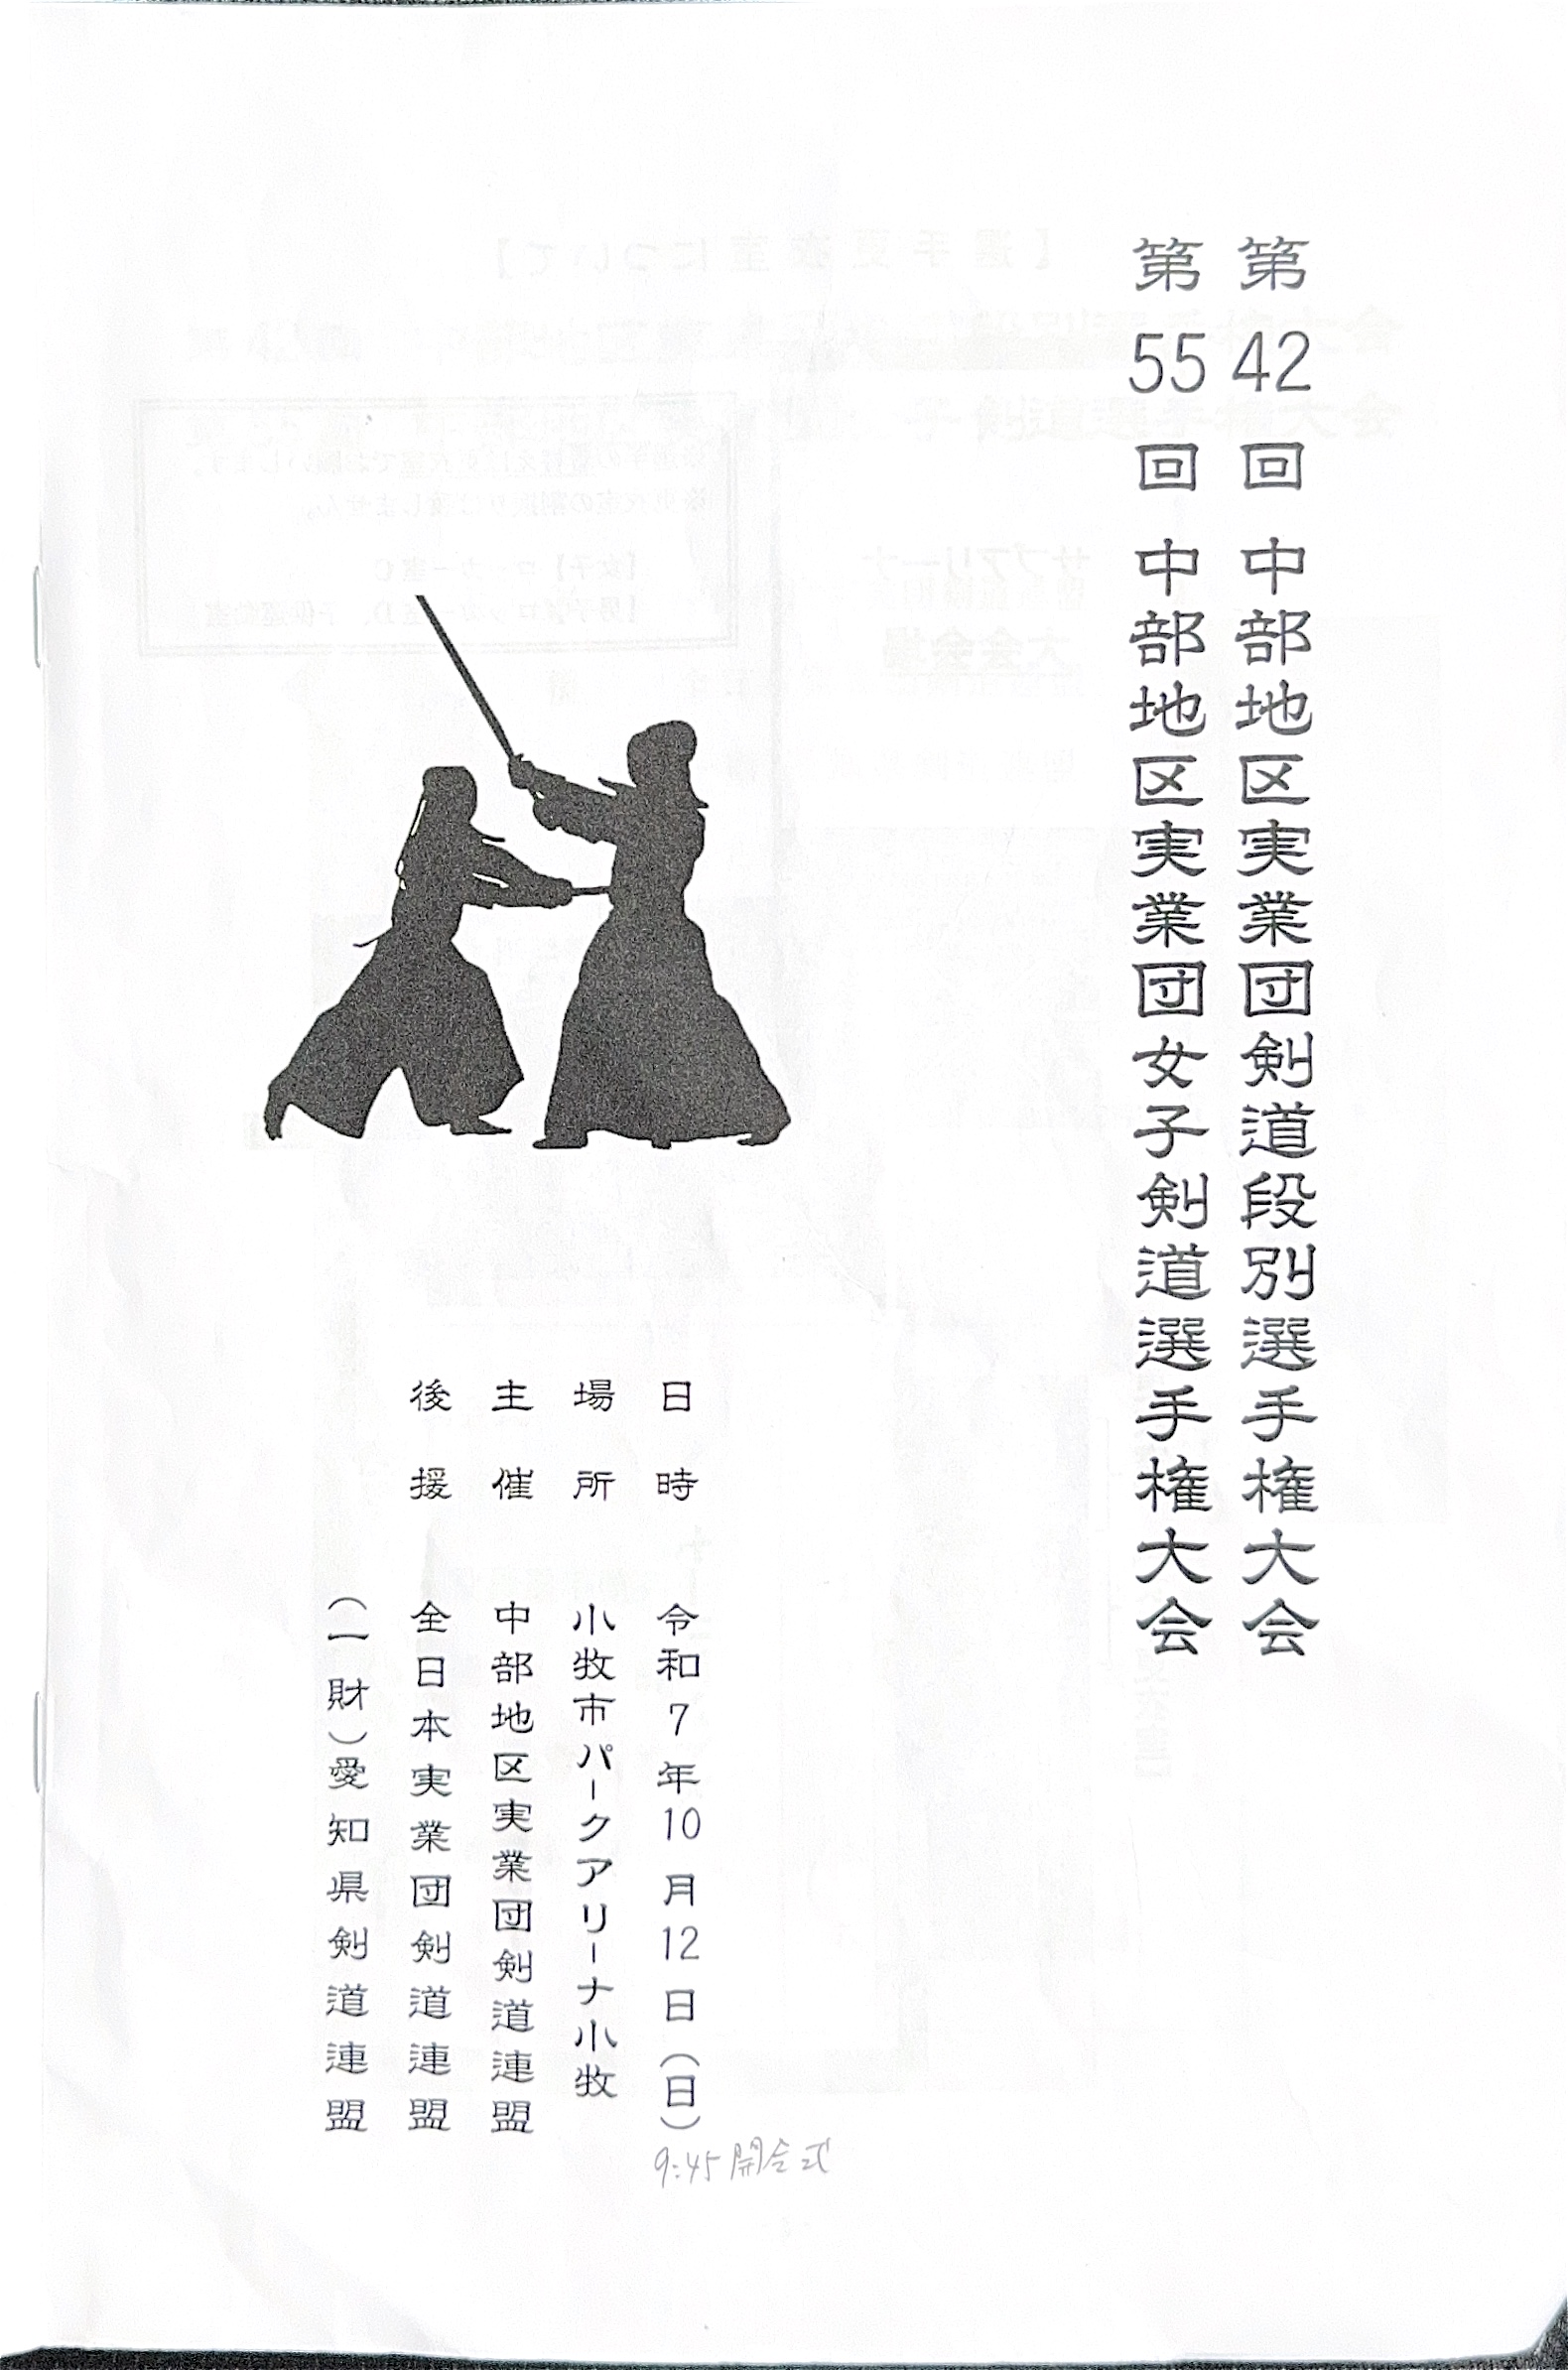 第42回中部地区実業団剣道段別選手権大会
第55回中部地区実業団女子剣道選手権大会
日時 令和7年10月12日(日)
9:45開会式
場所 小牧市パークアリーナ小牧
主催 中部地区実業団剣道連盟
後援 全日本実業団剣道連盟
(一財)愛知県剣道連盟